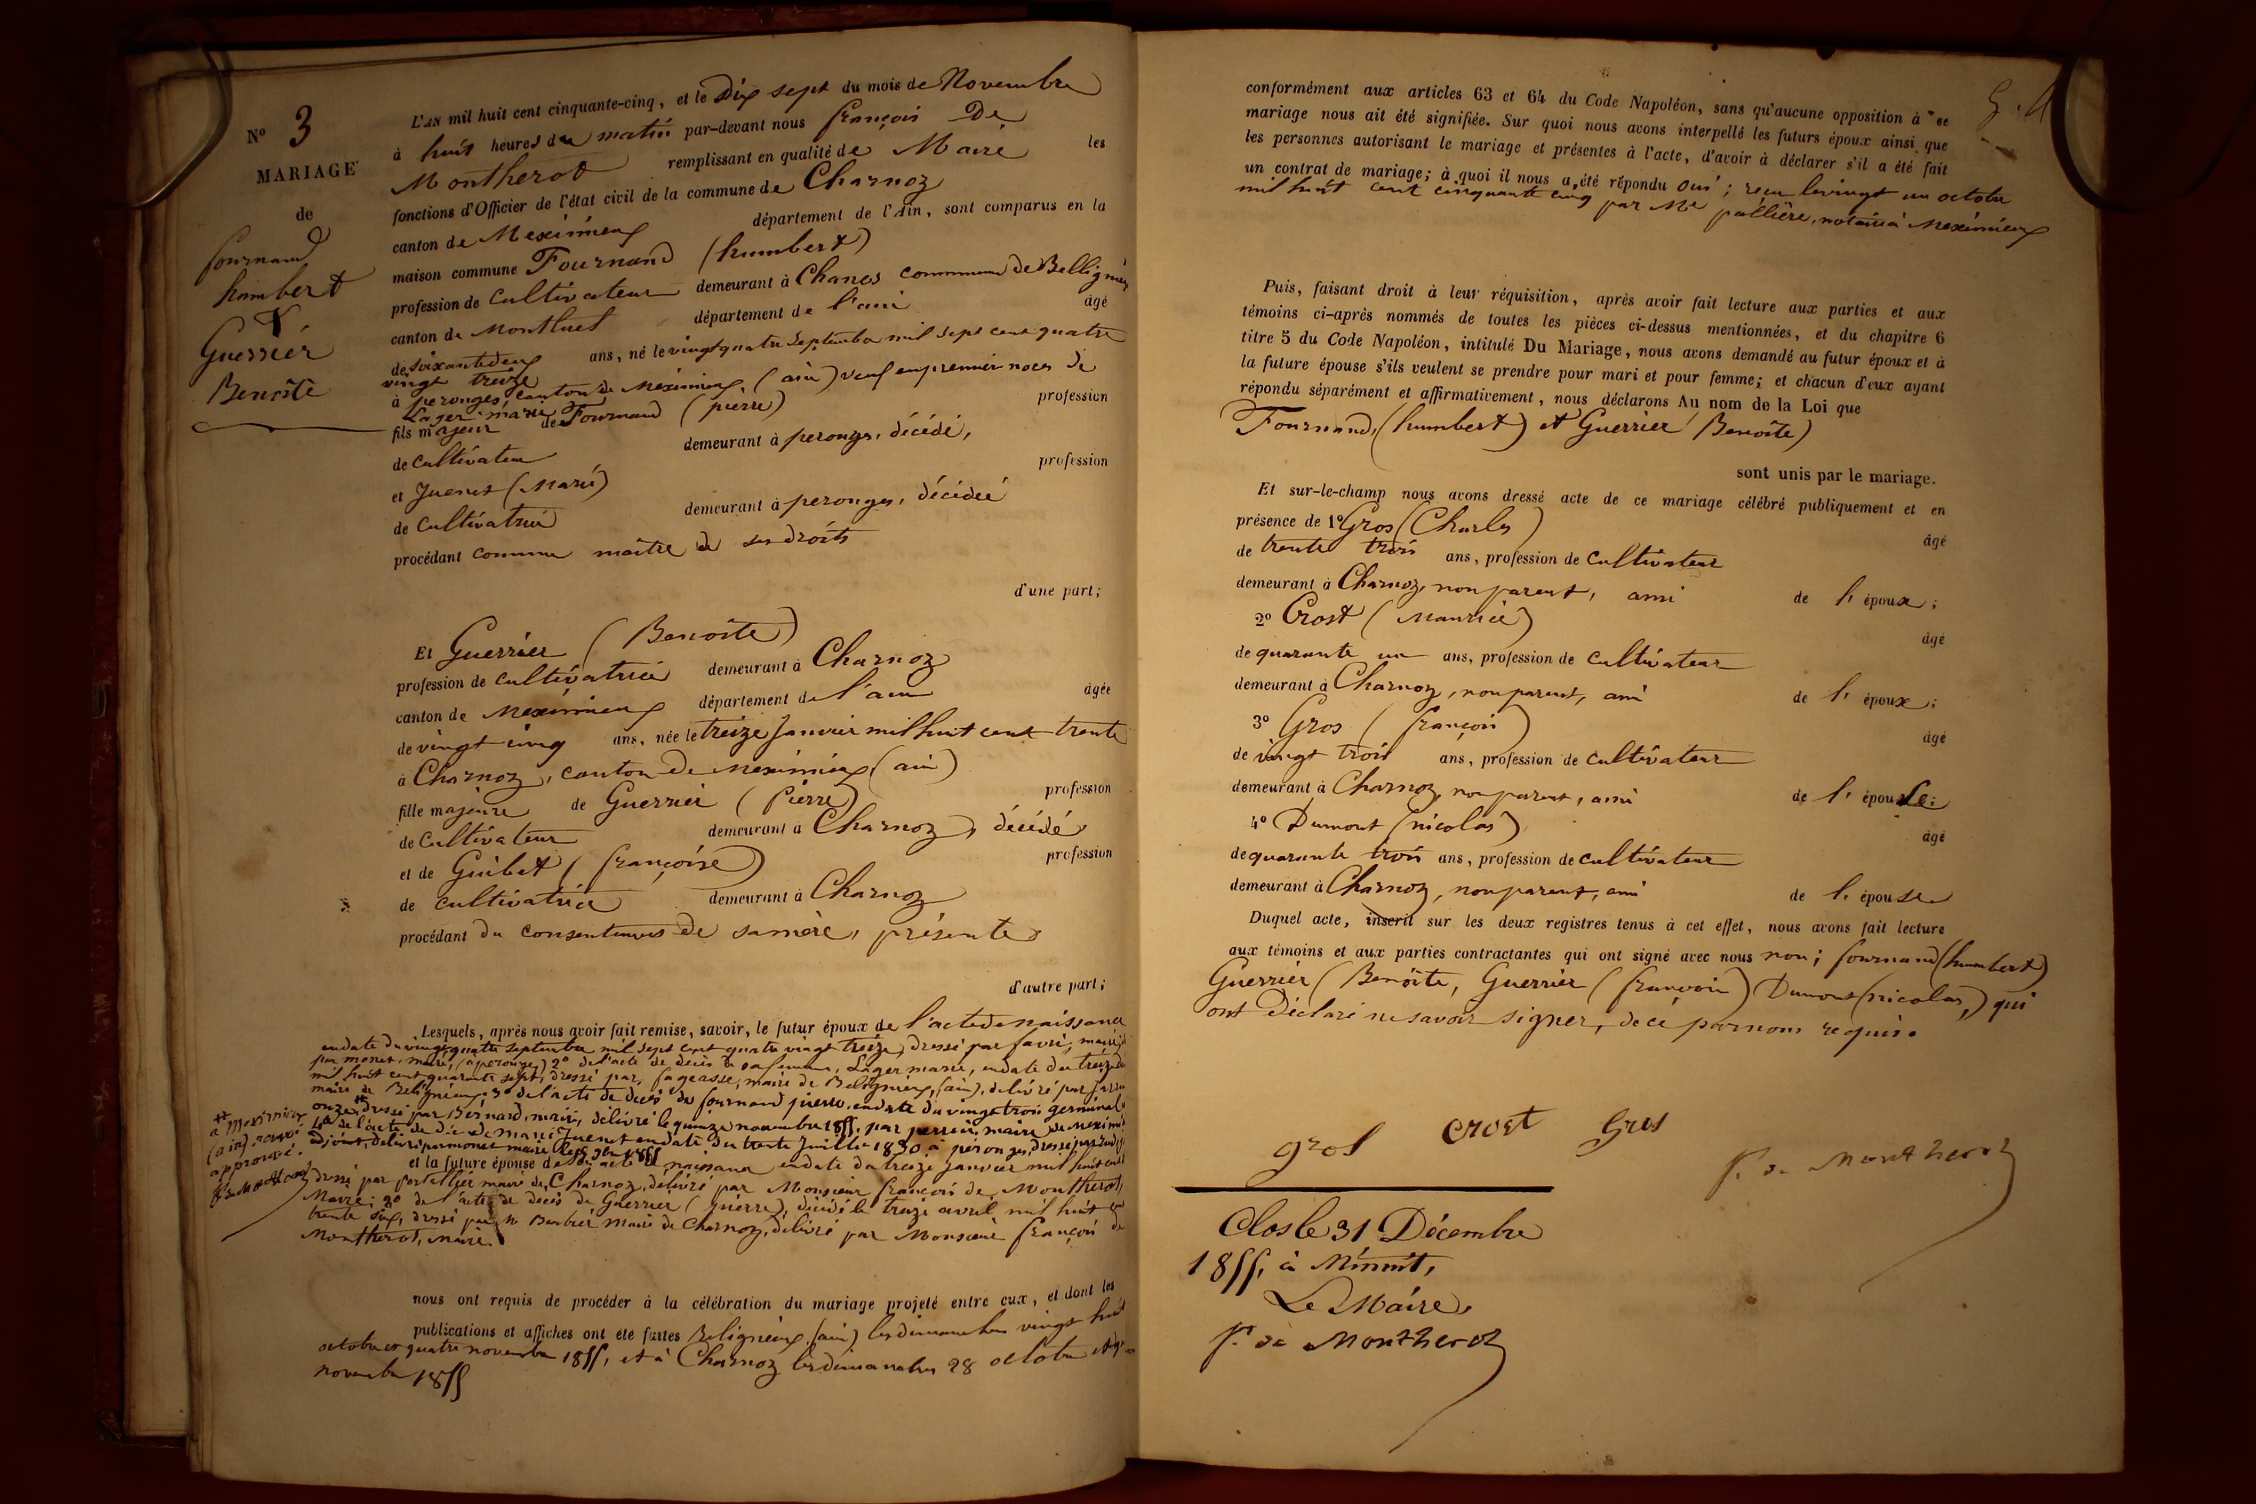 N° 3
MARIAGE
de
fournand
humbert
&
Guerrier
Benoîte
L'AN mil huit cent cinquante-cinq, et le Dix sept du mois de Novembre
à huit heures du matin par-devant nous françois De
Montherot remplissant en qualité de Maire les
fonctions d'Officier de l'état civil de la commune de Charnoz
canton de Meximieux département de l'Ain, sont comparus en la
maison commune Fournand (humbert)
profession de Cultivateur demeurant à Chanes commune de Belligneux
canton de Montluel département de l'ain âgé
de Soixante deux ans, né le vingt quatre Septembre mil sept cent quatre
vingt treize
à perouges canton de Meximieux, (ain) veuf en premier noces de
Lager marie
fils majeur de Fournand (pierre) profession
de Cultivateur demeurant à perouges, décédé,
et Juenet (Marie) profession
de Cultivatrice demeurant à perouges, décédée
procédant comme maître de ses droits
d'une part;
Et Guerrier (Benoîte)
profession de cultivatrice demeurant à Charnoz
canton de Meximieux département de l'ain âgée
de vingt cinq ans, née le treize Janvier mil huit cent trente
à Charnoz, canton de Meximieux (ain)
fille majeure de Guerrier (Pierre) profession
de Cultivateur demeurant à Charnoz, décédé
et de Guibet (françoise) profession
de cultivatrice demeurant à Charnoz
procédant du consentement de sa mère, présente
d'autre part;
Lesquels, après nous avoir fait remise, savoir, le futur époux de l'acte de naissance
en date du vingt quatre septembre mil sept cent quatre vingt treize, dressé par favre, maire,
par monet, maire, (à perouges) 2° de l'acte de décès de sa femme, Lager marie, en date du treize
mil huit cent quarante sept, dressé par, fageasse, maire de Beligneux, (ain), délivré par
maire de Beligneux. 3° de l'acte de décès de fournand pierre, en date du vingt trois germinal
onze dressé par Bernard, maire, délivré le quinze novembre 1855, par perrin, maire de
4° de l'acte de décès de marie Juenet en date du trente Juillet 1830 à perouges, dressé par
adjoint, délivré par monet maire
à meximieux
(ain) renvoi
approuvé.
f. de Montherot
et la future épouse de l'acte de naissance en date du treize janvier mil huit cent
dressé par portallier maire de Charnoz, délivré par Monsieur françois de Montherot,
Maire; 2° de l'acte de décès de Guerrier (pierre), décédé le treize avril mil huit cent
trente six, dressé par Barbier Maire de Charnoz, délivré par Monsieur françois de
Montherot, Maire.
nous ont requis de procéder à la célébration du mariage projeté entre eux, et dont les
publications et affiches ont été faites Beligneux, (ain) les dimanches vingt huit
octobre et quatre novembre 1855, et à Charnoz les dimanches 28 octobre et 4
novembre 1855
conformément aux articles 63 et 64 du Code Napoléon, sans qu'aucune opposition à ce
mariage nous ait été signifiée. Sur quoi nous avons interpellé les futurs époux ainsi que
les personnes autorisant le mariage et présentes à l'acte, d'avoir à déclarer s'il a été fait
un contrat de mariage; à quoi il nous a été répondu Oui; reçu le vingt un octobre
mil huit cent cinquante cinq par Me pallière, notaire à Meximieux
Puis, faisant droit à leur réquisition, après avoir fait lecture aux parties et aux
témoins ci-après nommés de toutes les pièces ci-dessus mentionnées, et du chapitre 6
titre 5 du Code Napoléon, intitulé Du Mariage, nous avons demandé au futur époux et à
la future épouse s'ils veulent se prendre pour mari et pour femme; et chacun d'eux ayant
répondu séparément et affirmativement, nous déclarons Au nom de la Loi que
Fournand, (humbert) et Guerrier Benoîte)
sont unis par le mariage.
Et sur-le-champ nous avons dressé acte de ce mariage célébré publiquement et en
présence de 1° Gros (Charles) âgé
de trente trois ans, profession de Cultivateur
demeurant à Charnoz, non parent, ami de l' époux;
2° Crost (Maurice) âgé
de quarante un ans, profession de Cultivateur
demeurant à Charnoz, non parent, ami de l' époux;
3° Gros (françois) âgé
de vingt trois ans, profession de Cultivateur
demeurant à Charnoz, non parent, ami de l' épouse;
4° Dumont (nicolas) âgé
de quarante trois ans, profession de Cultivateur
demeurant à Charnoz, non parent, ami de l' épouse
Duquel acte, inscrit sur les deux registres tenus à cet effet, nous avons fait lecture
aux témoins et aux parties contractantes qui ont signé avec nous non; fournand (humbert)
Guerrier (Benoîte, Guerrier (françois) Dumont (nicolas,) qui
ont Déclaré ne savoir signer, de ce par nous requis.
gros crost Gros
f. de Montherot
Clos le 31 Décembre
1855, à Minuit,
Le Maire,
f. de Montherot